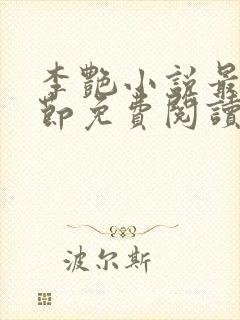 李艷小說最
節免費閱讀
波尔斯